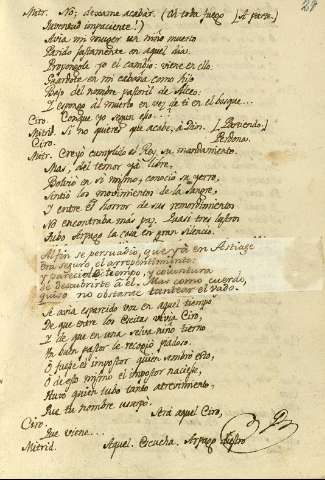 28
Mitr. No; dexame acabar. (Oh todo fuego [A parte.]
Juventud impaciente!)
Avia mi muger un niño muerto
Parido justamente en aquel dia.
Propongole yo el cambio: viene en ello:
Guardote en mi cabaña como hijo
Bajo del nombre pastoril de Alceo:
Y expongo al muerto en vez de ti en el busque...
Ciro. Conque yo segun esso...?
Mitrid. Si no quieres que acabe, à Dios. [Partiendo.]
Ciro. Perdona.
Mitr. Creyó cumplido el Rey su mandamiento.
Mas, del temor yá libre,
Bolvió en si mismo, conoció su yerro,
Sintió los movimientos de la Sangre,
Y entre el horror de sus remordimientos
No encontraba más paz. Quasi tres lustros
Tubo Arpago la cosa en gran silencio.
Al fin se persuadió, que yá en Astiage
Era seguro el arrepentimiento:
y pareciole tiempo, y coiuntura
de descubrirte à él. Mas como cuerdo,
quiso no obstante tantear el vado.
Se avia esparcido voz en aquel tiempo
De que entre los Escitas vivia Ciro,
Y de que en una selva niño tierno
Un buen pastor le recogió piadoso.
O fuesse el impostor quien sembró esto,
O de esto mismo el impostor naciesse,
Huvo quien tubo tanto atrevimiento,
Que tu nombre usurpó.
Ciro. Será aquel Ciro,
Que viene...
Mitrid. Aquel. Escucha. Arpago diestro